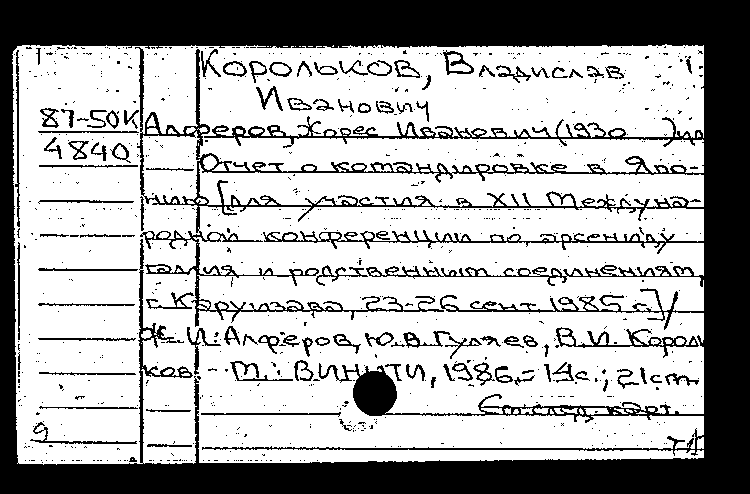 Корольков, Владислав
Иванович
87-50К Алферов, Жорес Иванович (1930 ) и др
4840 Отчет о командировке в Япо-
нию [для участия в XII Междуна-
родной конференции по арсениду
галлия и родственным соединениям,
г. Каруизава, 23-26 сент 1985 г.] /
Ж. И. Алферов, Ю. В. Гуляев, В. И. Король
ков - М.: ВИНИТИ, 1986. - 14с.; 21cm
См. след. карт.
9